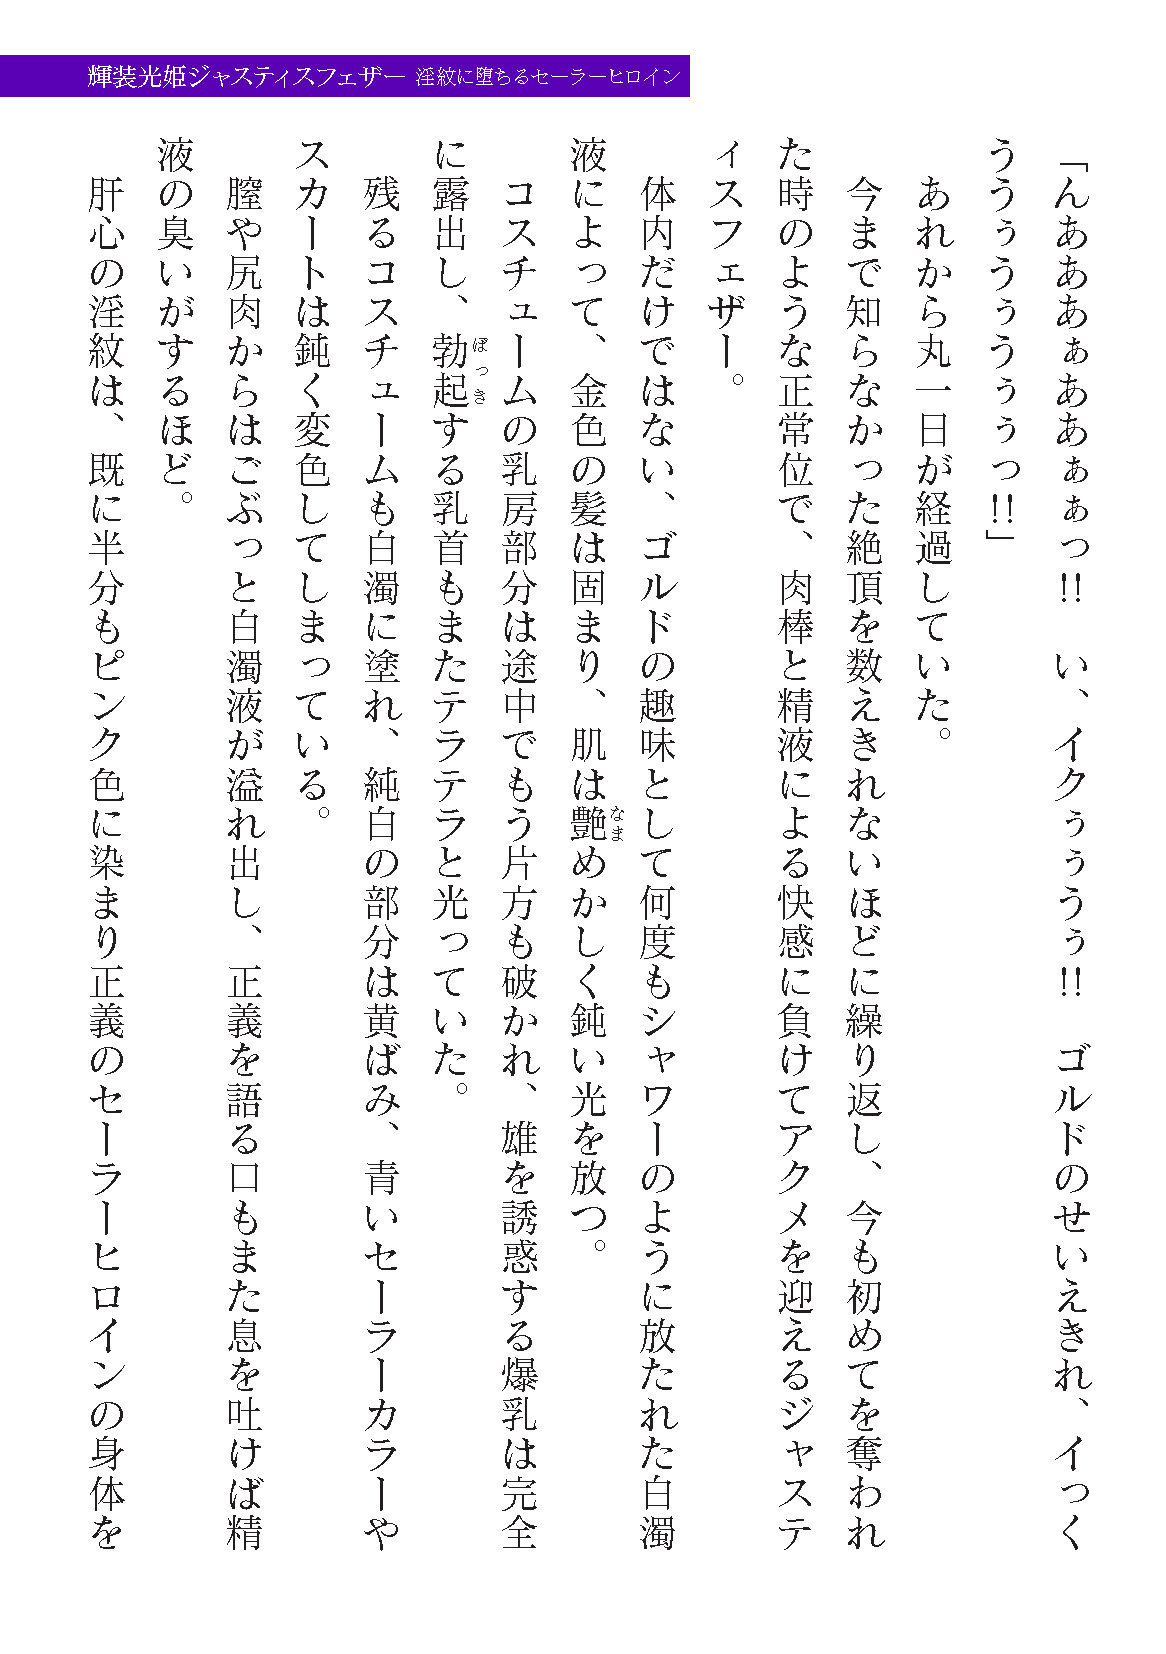 輝装光姫ジャスティスフェザー 淫紋に堕ちるセーラーヒロイン
「んあああぁああぁぁっ!! い、イクぅぅうぅ!! ゴルドのせいえきれ、イっく
ううぅうぅうぅぅっ!!」
あれから丸一日が経過していた。
今まで知らなかった絶頂を数えきれないほどに繰り返し、今も初めてを奪われ
た時のような正常位で、肉棒と精液による快感に負けてアクメを迎えるジャステ
ィスフェザー。
体内だけではない、ゴルドの趣味として何度もシャワーのように放たれた白濁
液によって、金色の髪は固まり、肌は艶めかしく鈍い光を放つ。
コスチュームの乳房部分は途中でもう片方も破かれ、雄を誘惑する爆乳は完全
に露出し、勃起する乳首もまたテラテラと光っていた。
残るコスチュームも白濁に塗れ、純白の部分は黄ばみ、青いセーラーカラーや
スカートは鈍く変色してしまっている。
膣や尻肉からはごぶっと白濁液が溢れ出し、正義を語る口もまた息を吐けば精
液の臭いがするほど。
肝心の淫紋は、既に半分もピンク色に染まり正義のセーラーヒロインの身体を